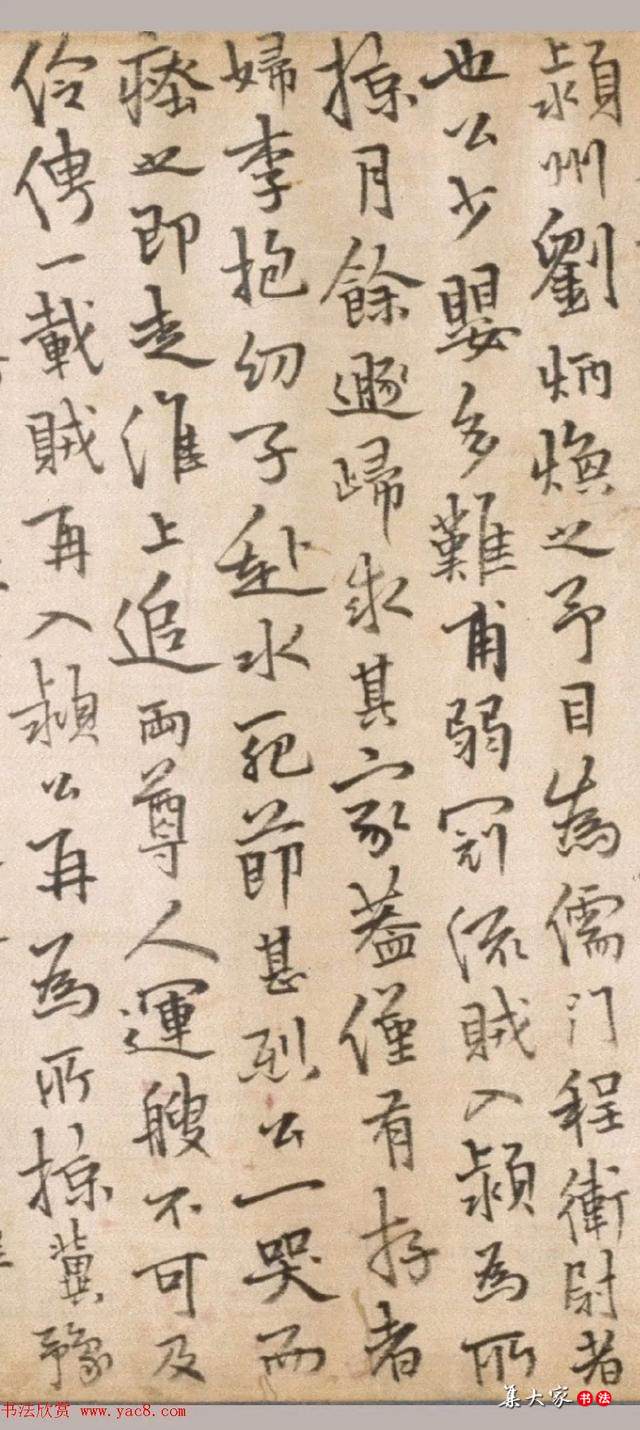 潁州劉炳煥之予目為儒門程衛尉者
也公少嬰多難甫弱冠流賊入潁為所
掠月餘遯歸求其家蓋僅有存者
婦李抱幼子赴水死節甚烈公一哭而
瘞之即走淮上追兩尊人運艘不可及
伶俜一載賊再入潁公再為所掠冀豫
集大家 书法
书法欣赏 www.yac8.com